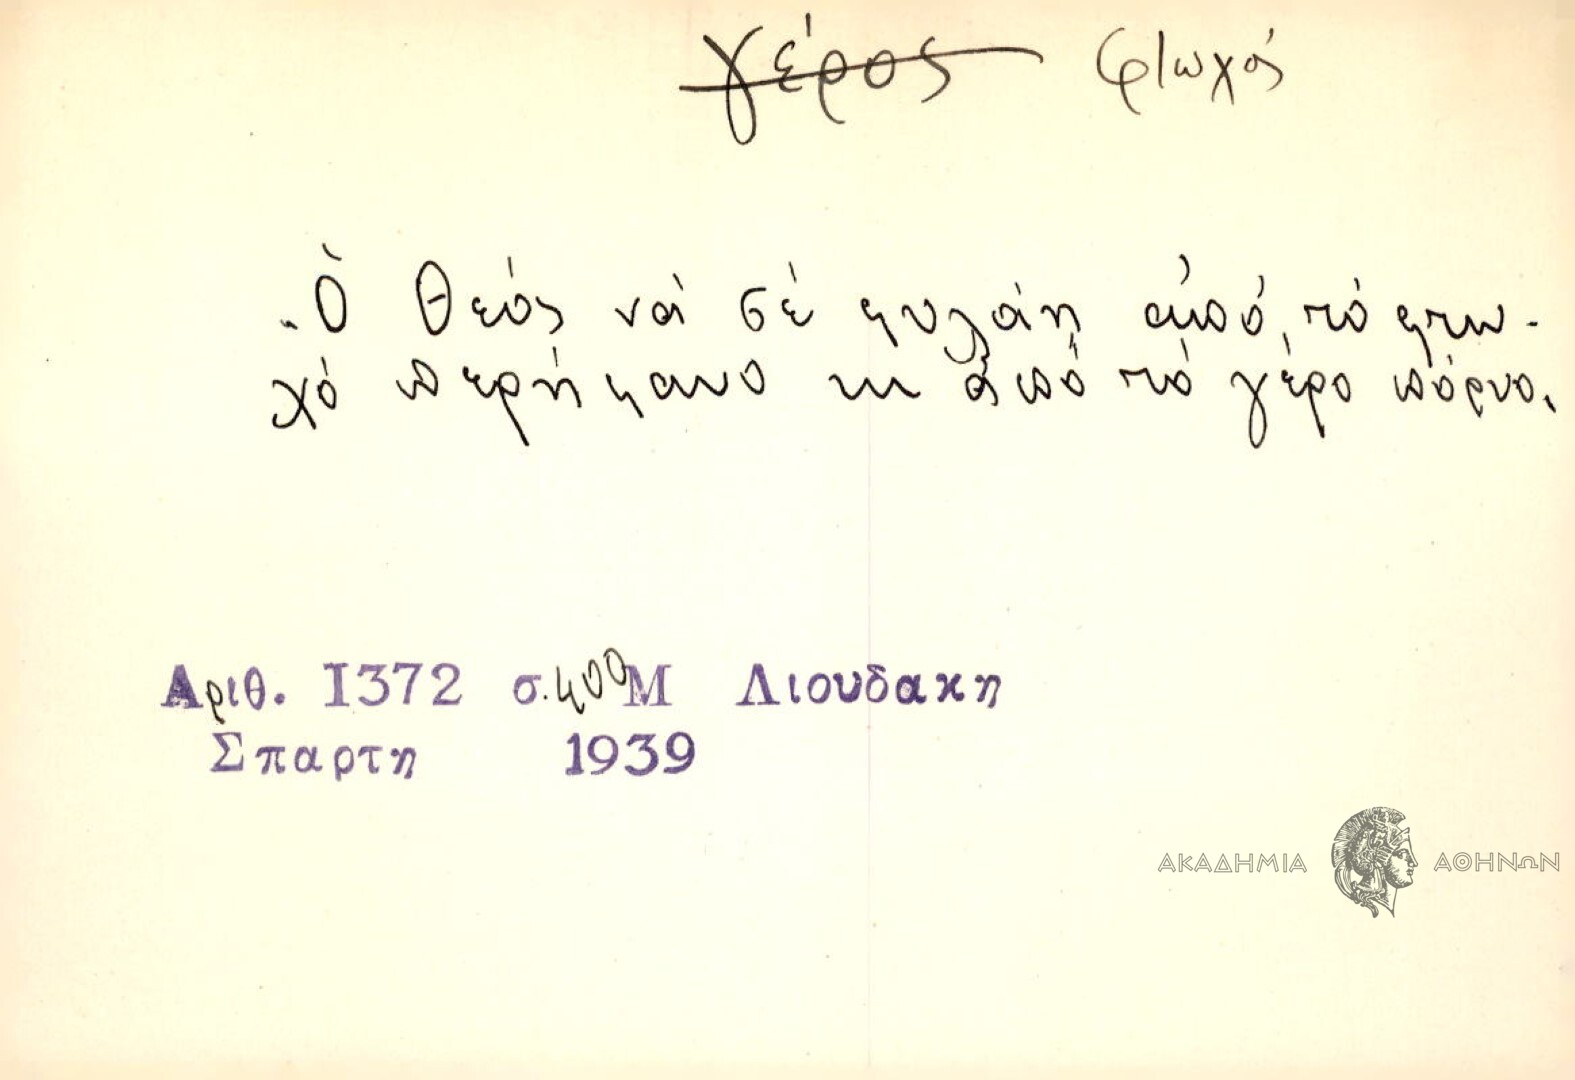 γέρος φτωχός
Ὁ Θεός νά σέ φυλάῃ ἀπό τό φτω-
χό περήφανο κι ἀπό τό γέρο πόρνο.
Αριθ. 1372 σ. 400 Μ Λιουδακη
Σπαρτη 1939
ΑΚΑΔΗΜΙΑ ΑΘΗΝΩΝ